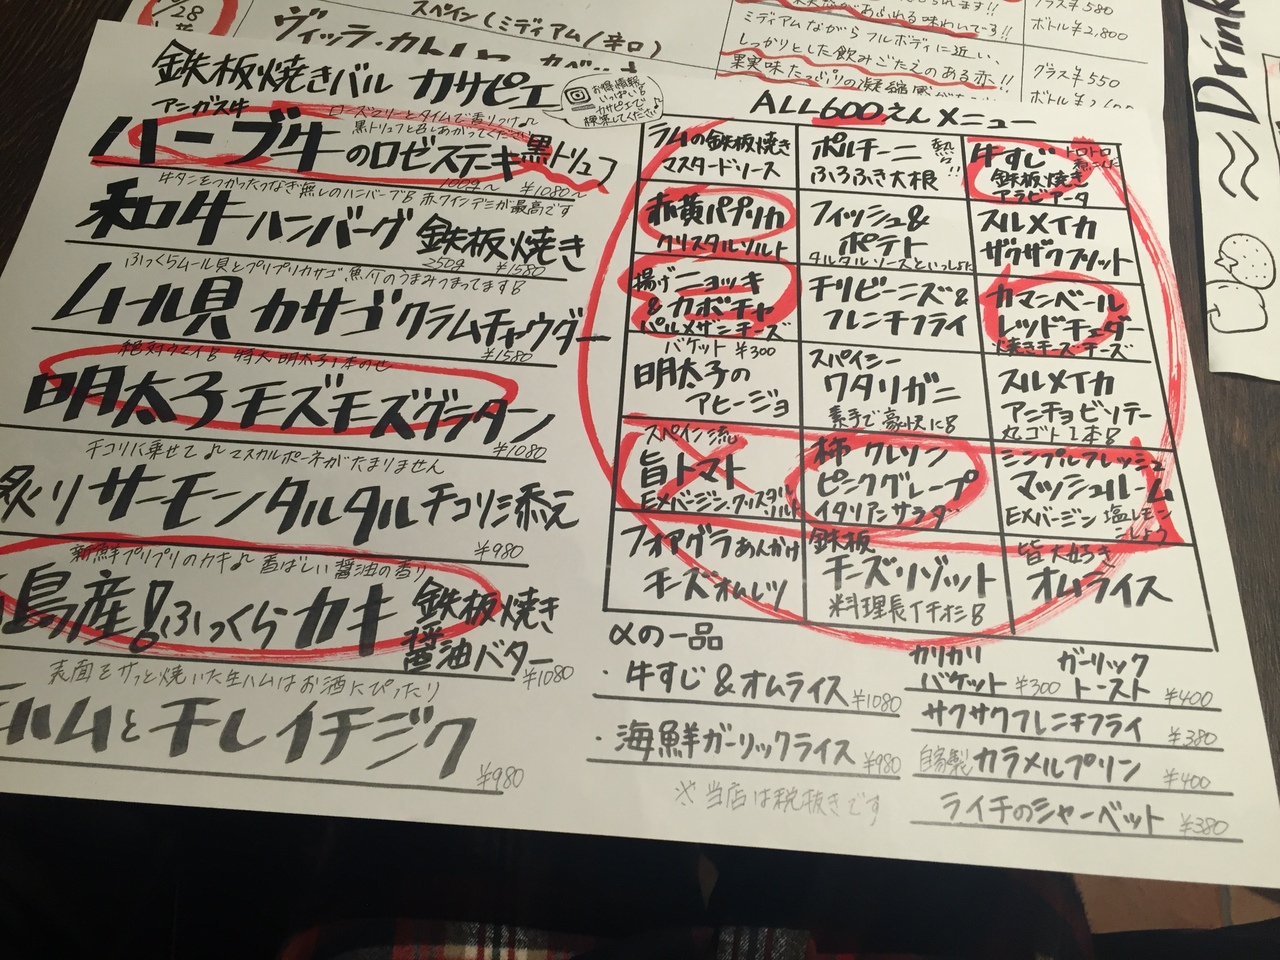 スペイン(ミディアム/辛口)
ミディアムながらフルボディに近い、
しっかりとした飲みごたえのある赤!!
グラス¥580
ボトル¥2,800
グラス¥550
Drink
鉄板焼きバル カサピエ
アンガス牛
ローズマリーとタイムで香りつけ♪
黒トリュフと召しあがってください
ハーブ牛のロゼステーキ黒トリュフ
100g〜 ¥1080〜
牛タンをつかったつなぎ無しのハンバーグ!! 赤ワインデミが最高です
和牛ハンバーグ 鉄板焼き
250g ¥1580
ふっくらムール貝とプリプリカサゴ 魚介のうまみつまってます!!
ムール貝 カサゴ クラムチャウダー
¥1580
絶対ウマイ!! 特大 明太子1本のせ
明太子モズモズグラタン
¥1080
チコリに乗せて♪ マスカルポーネがたまりません
炙りサーモンタルタル チコリニ添え
¥980
新鮮プリプリのカキ♪ 香ばしい醤油の香り
島産!ふっくらカキ 鉄板焼き
醤油バター
¥1080
表面をサッと焼いた生ハムはお酒にぴったり
ハムと干しイチジク
¥980
お得情報
いっぱい!
カサピエで
検索してください♪
ALL600えんメニュー
ラムの鉄板焼き
マスタードソース
ポルチーニ 熱!!
ふろふき大根
牛すじ トロトロ
鉄板焼き
アラビアータ
赤黄パプリカ
クリスタルソルト
フィッシュ&
ポテト
タルタルソースといっしょに
スルメイカ
ザクザクフリット
揚げニョッキ
&カボチャ
パルメザンチーズ
チリビーンズ&
フレンチフライ
カマンベール
レッドチェダー
焼きチーズチーズ
バケット ¥300
明太子の
アヒージョ
スパイシー
ワタリガニ
素手で豪快に!!
スルメイカ
アンチョビソテー
丸ゴト1本!!
スペイン流
旨トマト
EXバージン.クリスタルソルト
柿 クレソン
ピンクグレープ
イタリアンサラダ
シンプルフレッシュ
マッシュルーム
EXバージン 塩レモン
こしょう
フォアグラあんかけ
チーズオムレツ
鉄板
チーズリゾット
料理長イチオシ!!
皆大好き
オムライス
αの一品
・牛すじ&オムライス ¥1080
・海鮮ガーリックライス ¥980
※当店は税抜きです
カリカリ
バケット ¥300
ガーリック
トースト ¥400
サクサクフレンチフライ ¥380
自家製カラメルプリン ¥400
ライチのシャーベット ¥380